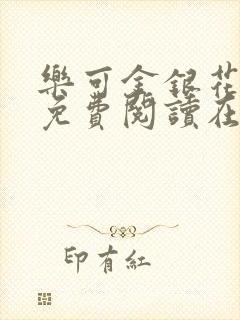 樂可金銀花
免費閱讀在
印有紅